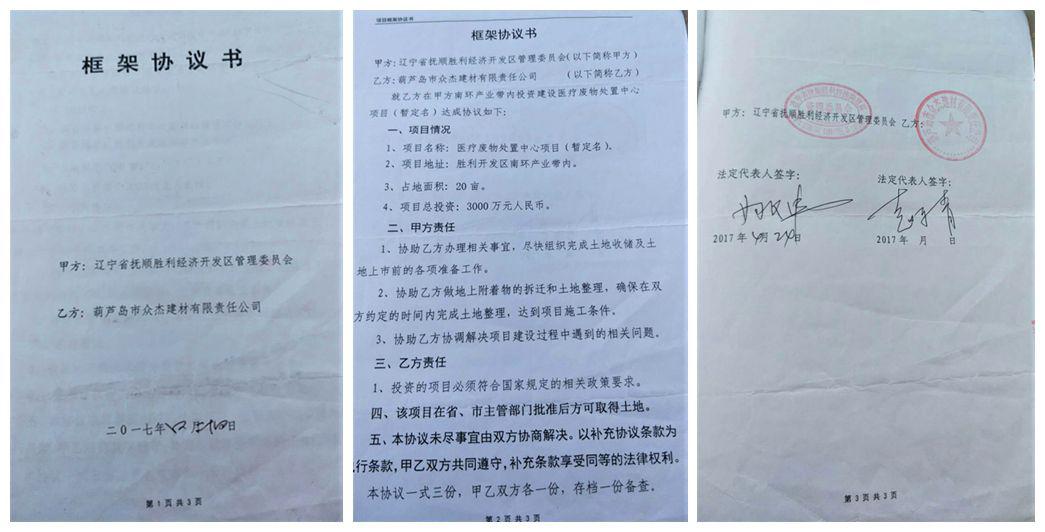 框架协议书
甲方：辽宁省抚顺胜利经济开发区管理委员会
乙方：葫芦岛市众杰建材有限责任公司
二〇一七年四月二十四日
第1页共3页
项目框架协议书
框架协议书
甲方：辽宁省抚顺胜利经济开发区管理委员会（以下简称甲方）
乙方：葫芦岛市众杰建材有限责任公司 （以下简称乙方）
就乙方在甲方南环产业带内投资建设医疗废物处置中心
项目（暂定名）达成协议如下：
一、项目情况
1、项目名称：医疗废物处置中心项目（暂定名）。
2、项目地址：胜利开发区南环产业带内。
3、占地面积：20亩。
4、项目总投资：3000万元人民币。
二、甲方责任
1、协助乙方办理相关事宜，尽快组织完成土地收储及土
地上市前的各项准备工作。
2、协助乙方做地上附着物的拆迁和土地整理，确保在双
方约定的时间内完成土地整理，达到项目施工条件。
3、协助乙方协调解决项目建设过程中遇到的相关问题。
三、乙方责任
1、投资的项目必须符合国家规定的相关政策要求。
四、该项目在省、市主管部门批准后方可取得土地。
五、本协议未尽事宜由双方协商解决。以补充协议条款为
行条款，甲乙双方共同遵守，补充条款享受同等的法律权利。
本协议一式三份，甲乙双方各一份，存档一份备查。
第2页共3页
甲方：辽宁省抚顺胜利经济开发区管理委员会 乙方：
法定代表人签字：
2017年4月24日
法定代表人签字：
2017年 月 日
第3页共3页